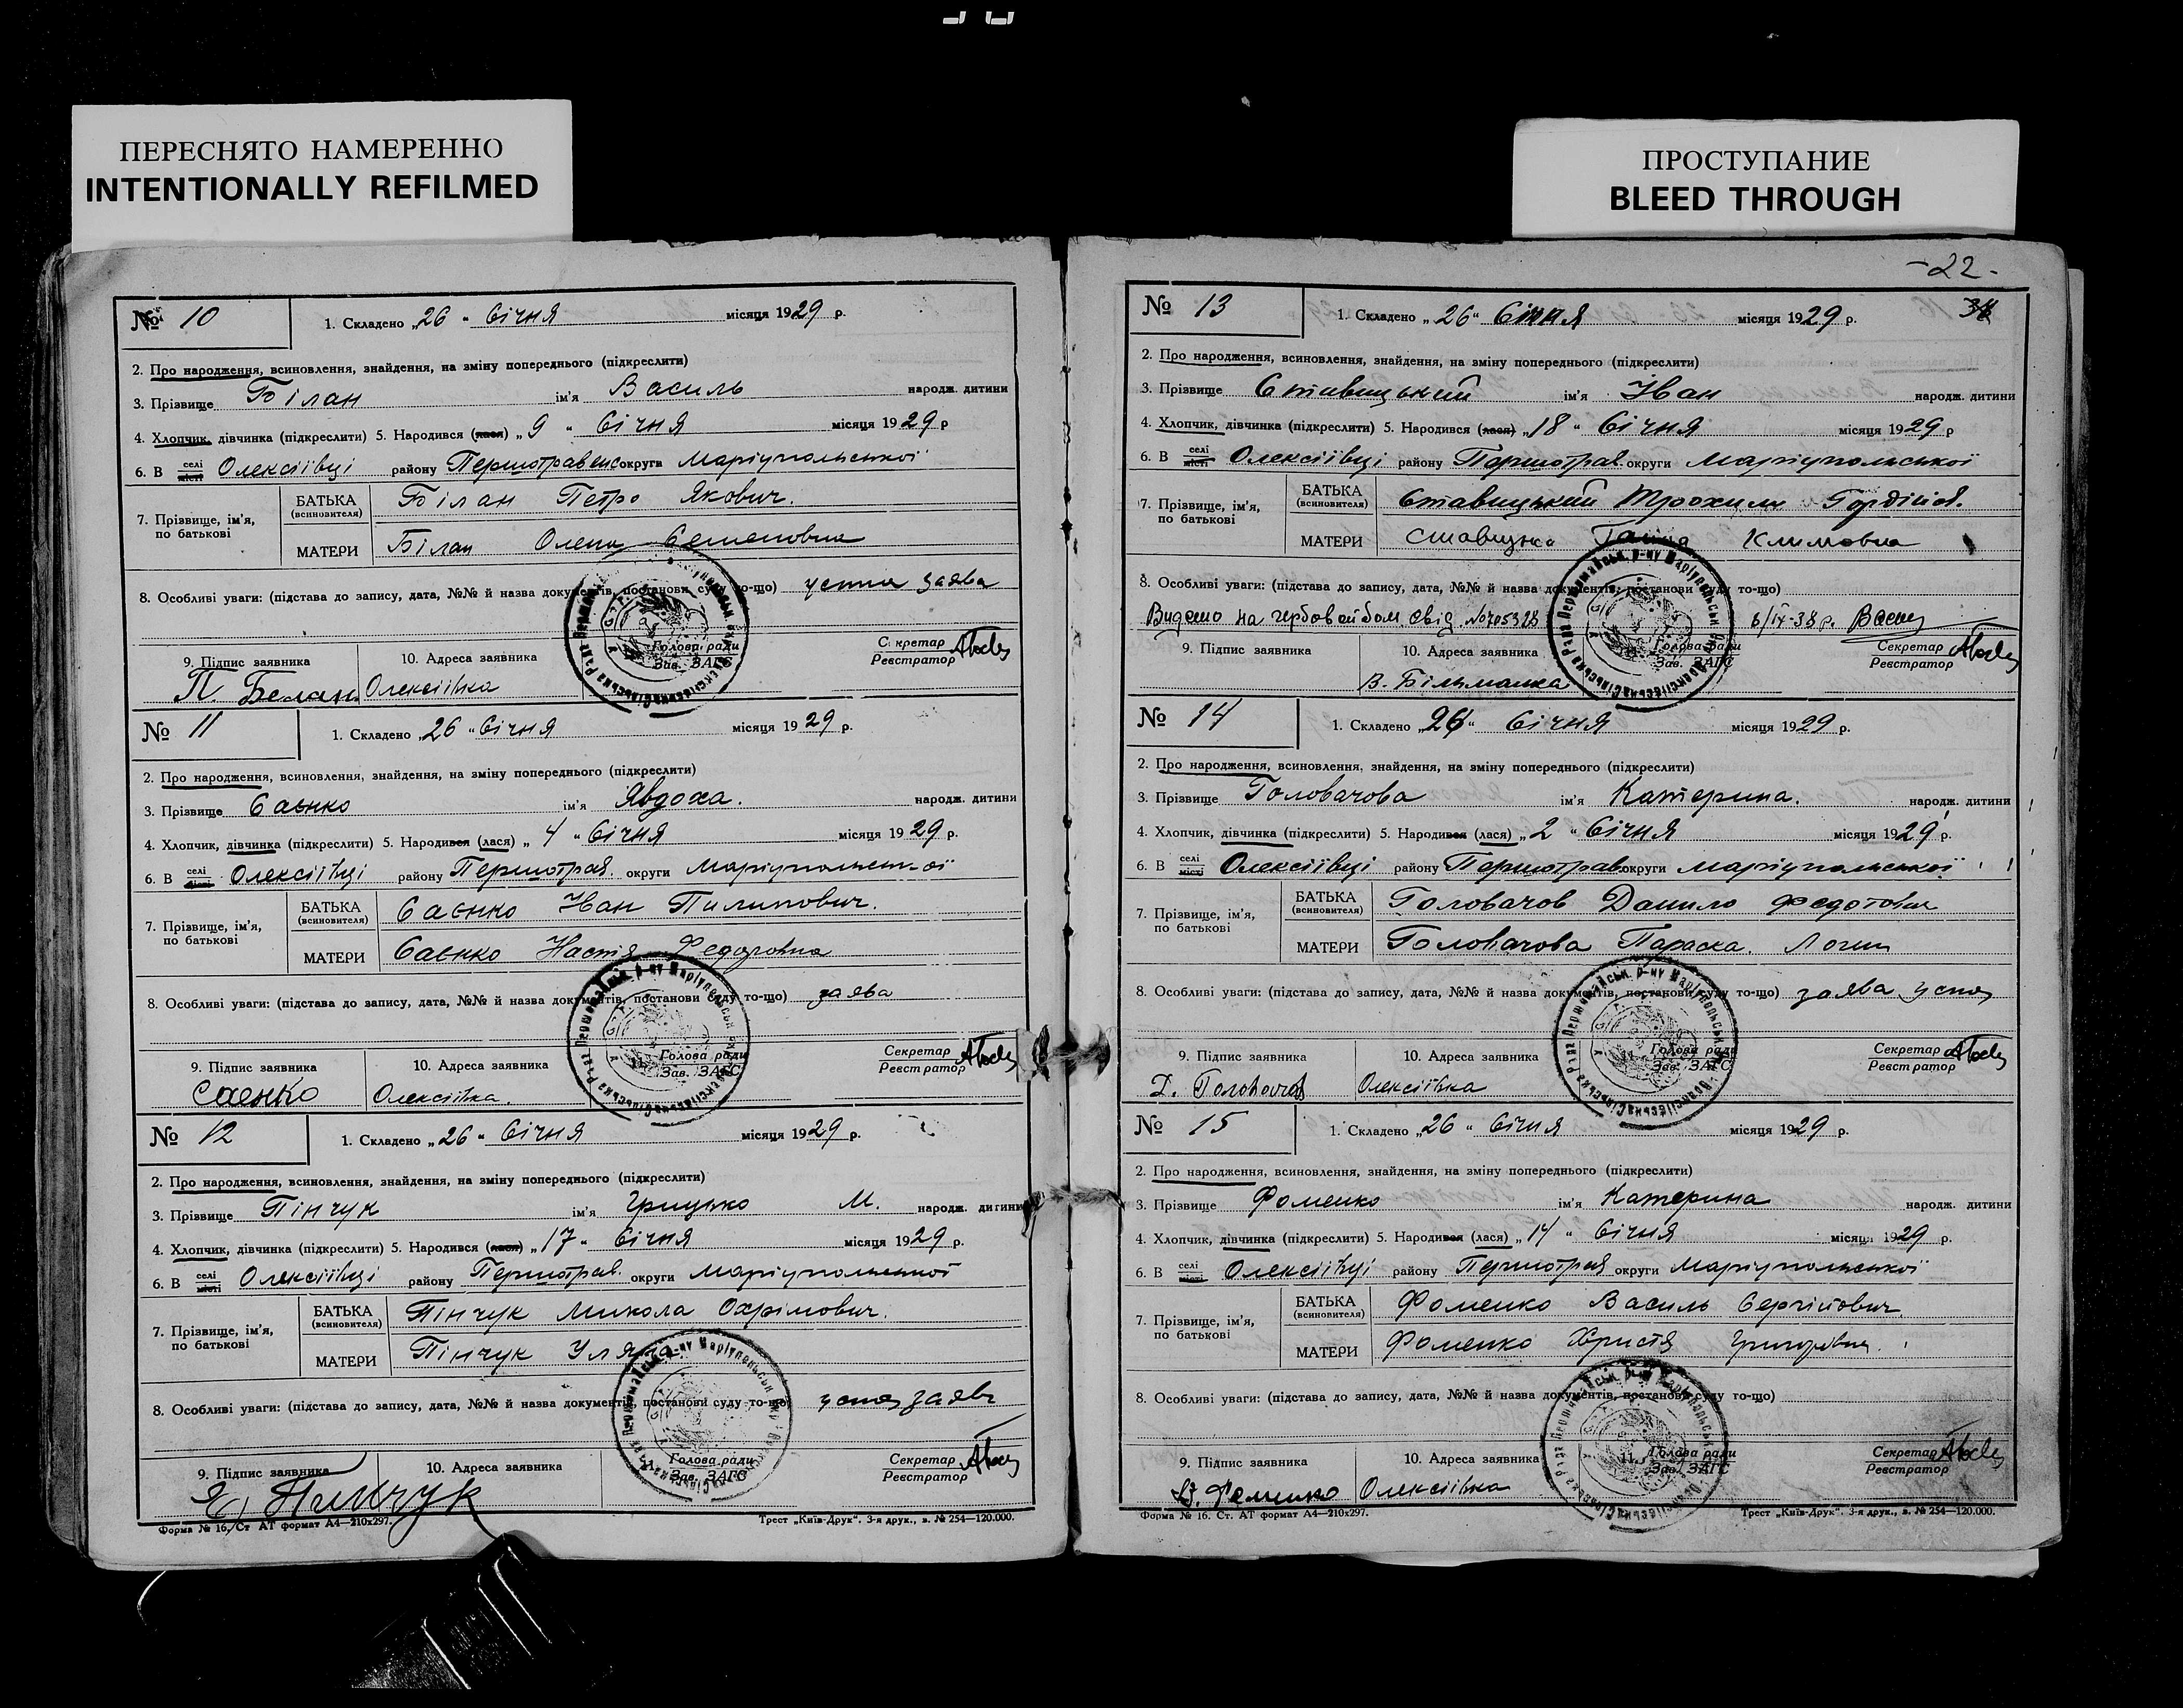 ПЕРЕСНЯТО НАМЕРЕННО
INTENTIONALLY REFILMED
ПРОСТУПАНИЕ
BLEED THROUGH
№ 10 1. Складено „26" Січня місяця 1929 р.
2. Про народження, всиновлення, знайдення, на зміну попереднього (підкреслити)
3. Прізвище Білан ім'я Василь народж. дитини
4. Хлопчик, дівчинка (підкреслити) 5. Народився (лася) „9" Січня місяця 1929 р
6. В селі місті Олексіївці району Першотравенс округи Маріупольської
7. Прізвище, ім'я, по батькові БАТЬКА (всиновителя) Білан Петро Якович.
МАТЕРИ Білан Олена Семеновна
8. Особливі уваги: (підстава до запису, дата, №№ й назва документів, постанови суду то-що) устна заява
9. Підпис заявника 10. Адреса заявника Голова ради Зав. ЗАГС Секретар Реєстратор
П. Белан Олексіївка
№ 11 1. Складено „26" Січня місяця 1929 р.
2. Про народження, всиновлення, знайдення, на зміну попереднього (підкреслити)
3. Прізвище Саєнко ім'я Явдоха. народж. дитини
4. Хлопчик, дівчинка (підкреслити) 5. Народився (лася) „4" Січня місяця 1929 р.
6. В селі місті Олексіївці району Першотрав. округи Маріупольської
7. Прізвище, ім'я, по батькові БАТЬКА (всиновителя) Саєнко Іван Пилипович.
МАТЕРИ Саєнко Настя Федоровна
8. Особливі уваги: (підстава до запису, дата, №№ й назва документів, постанови суду то-що) заява
9. Підпис заявника 10. Адреса заявника Голова ради Зав. ЗАГС Секретар Реєстратор
Саенко Олексіївка.
№ 12 1. Складено „26" Січня місяця 1929 р.
2. Про народження, всиновлення, знайдення, на зміну попереднього (підкреслити)
3. Прізвище Пінчук ім'я Грицько М. народж. дитини
4. Хлопчик, дівчинка (підкреслити) 5. Народився (лася) „17" Січня місяця 1929 р.
6. В селі місті Олексіївці району Першотрав. округи Маріупольської
7. Прізвище, ім'я, по батькові БАТЬКА (всиновителя) Пінчук Микола Охрімович.
МАТЕРИ Пінчук Уляна
8. Особливі уваги: (підстава до запису, дата, №№ й назва документів, постанови суду то-що) устна заява
9. Підпис заявника 10. Адреса заявника 11. Голова ради Зав. ЗАГС Секретар Реєстратор
Пинчук
Форма № 16. Ст АТ формат А4—210x297. Трест „Київ-Друк". 3-я друк., в. № 254—120.000.
-22-
№ 13 1. Складено „26" Січня місяця 1929 р.
2. Про народження, всиновлення, знайдення, на зміну попереднього (підкреслити)
3. Прізвище Ставицький ім'я Іван народж. дитини
4. Хлопчик, дівчинка (підкреслити) 5. Народився (лася) „18" Січня місяця 1929 р
6. В селі місті Олексіївці району Першотрав. округи Маріупольської
7. Прізвище, ім'я, по батькові БАТЬКА (всиновителя) Ставицький Трохим Гордійов.
МАТЕРИ Ставицька Ганна Климовна
8. Особливі уваги: (підстава до запису, дата, №№ й назва документів, постанови суду то-що)
Видано на гербовой бом. свід. №705328 6/IV-38 р.
9. Підпис заявника 10. Адреса заявника Голова ради Зав. ЗАГС Секретар Реєстратор
В. Більманка
№ 14 1. Складено „26" Січня місяця 1929 р.
2. Про народження, всиновлення, знайдення, на зміну попереднього (підкреслити)
3. Прізвище Головачова ім'я Катерина. народж. дитини
4. Хлопчик, дівчинка (підкреслити) 5. Народився (лася) „2" Січня місяця 1929 р.
6. В селі місті Олексіївці району Першотрав. округи Маріупольської
7. Прізвище, ім'я, по батькові БАТЬКА (всиновителя) Головачов Данило Федотович
МАТЕРИ Головачова Параска. Логин
8. Особливі уваги: (підстава до запису, дата, №№ й назва документів, постанови суду то-що) заява устна
9. Підпис заявника 10. Адреса заявника 11. Голова ради Зав. ЗАГС Секретар Реєстратор
Д. Головачов Олексіївка
№ 15 1. Складено „26" Січня місяця 1929 р.
2. Про народження, всиновлення, знайдення, на зміну попереднього (підкреслити)
3. Прізвище Фоменко ім'я Катерина народж. дитини
4. Хлопчик, дівчинка (підкреслити) 5. Народився (лася) „14" Січня місяця 1929 р.
6. В селі місті Олексіївці району Першотрав округи Маріупольської
7. Прізвище, ім'я, по батькові БАТЬКА (всиновителя) Фоменко Василь Сергійович
МАТЕРИ Фоменко Христя Григорівна.
8. Особливі уваги: (підстава до запису, дата, №№ й назва документів, постанови суду то-що)
9. Підпис заявника 10. Адреса заявника 11. Голова ради Зав. ЗАГС Секретар Реєстратор
В. Фоменко Олексіївка
Форма № 16. Ст. АТ формат А4—210x297. Трест „Київ-Друк". 3-я друк., в. № 254—120.000.